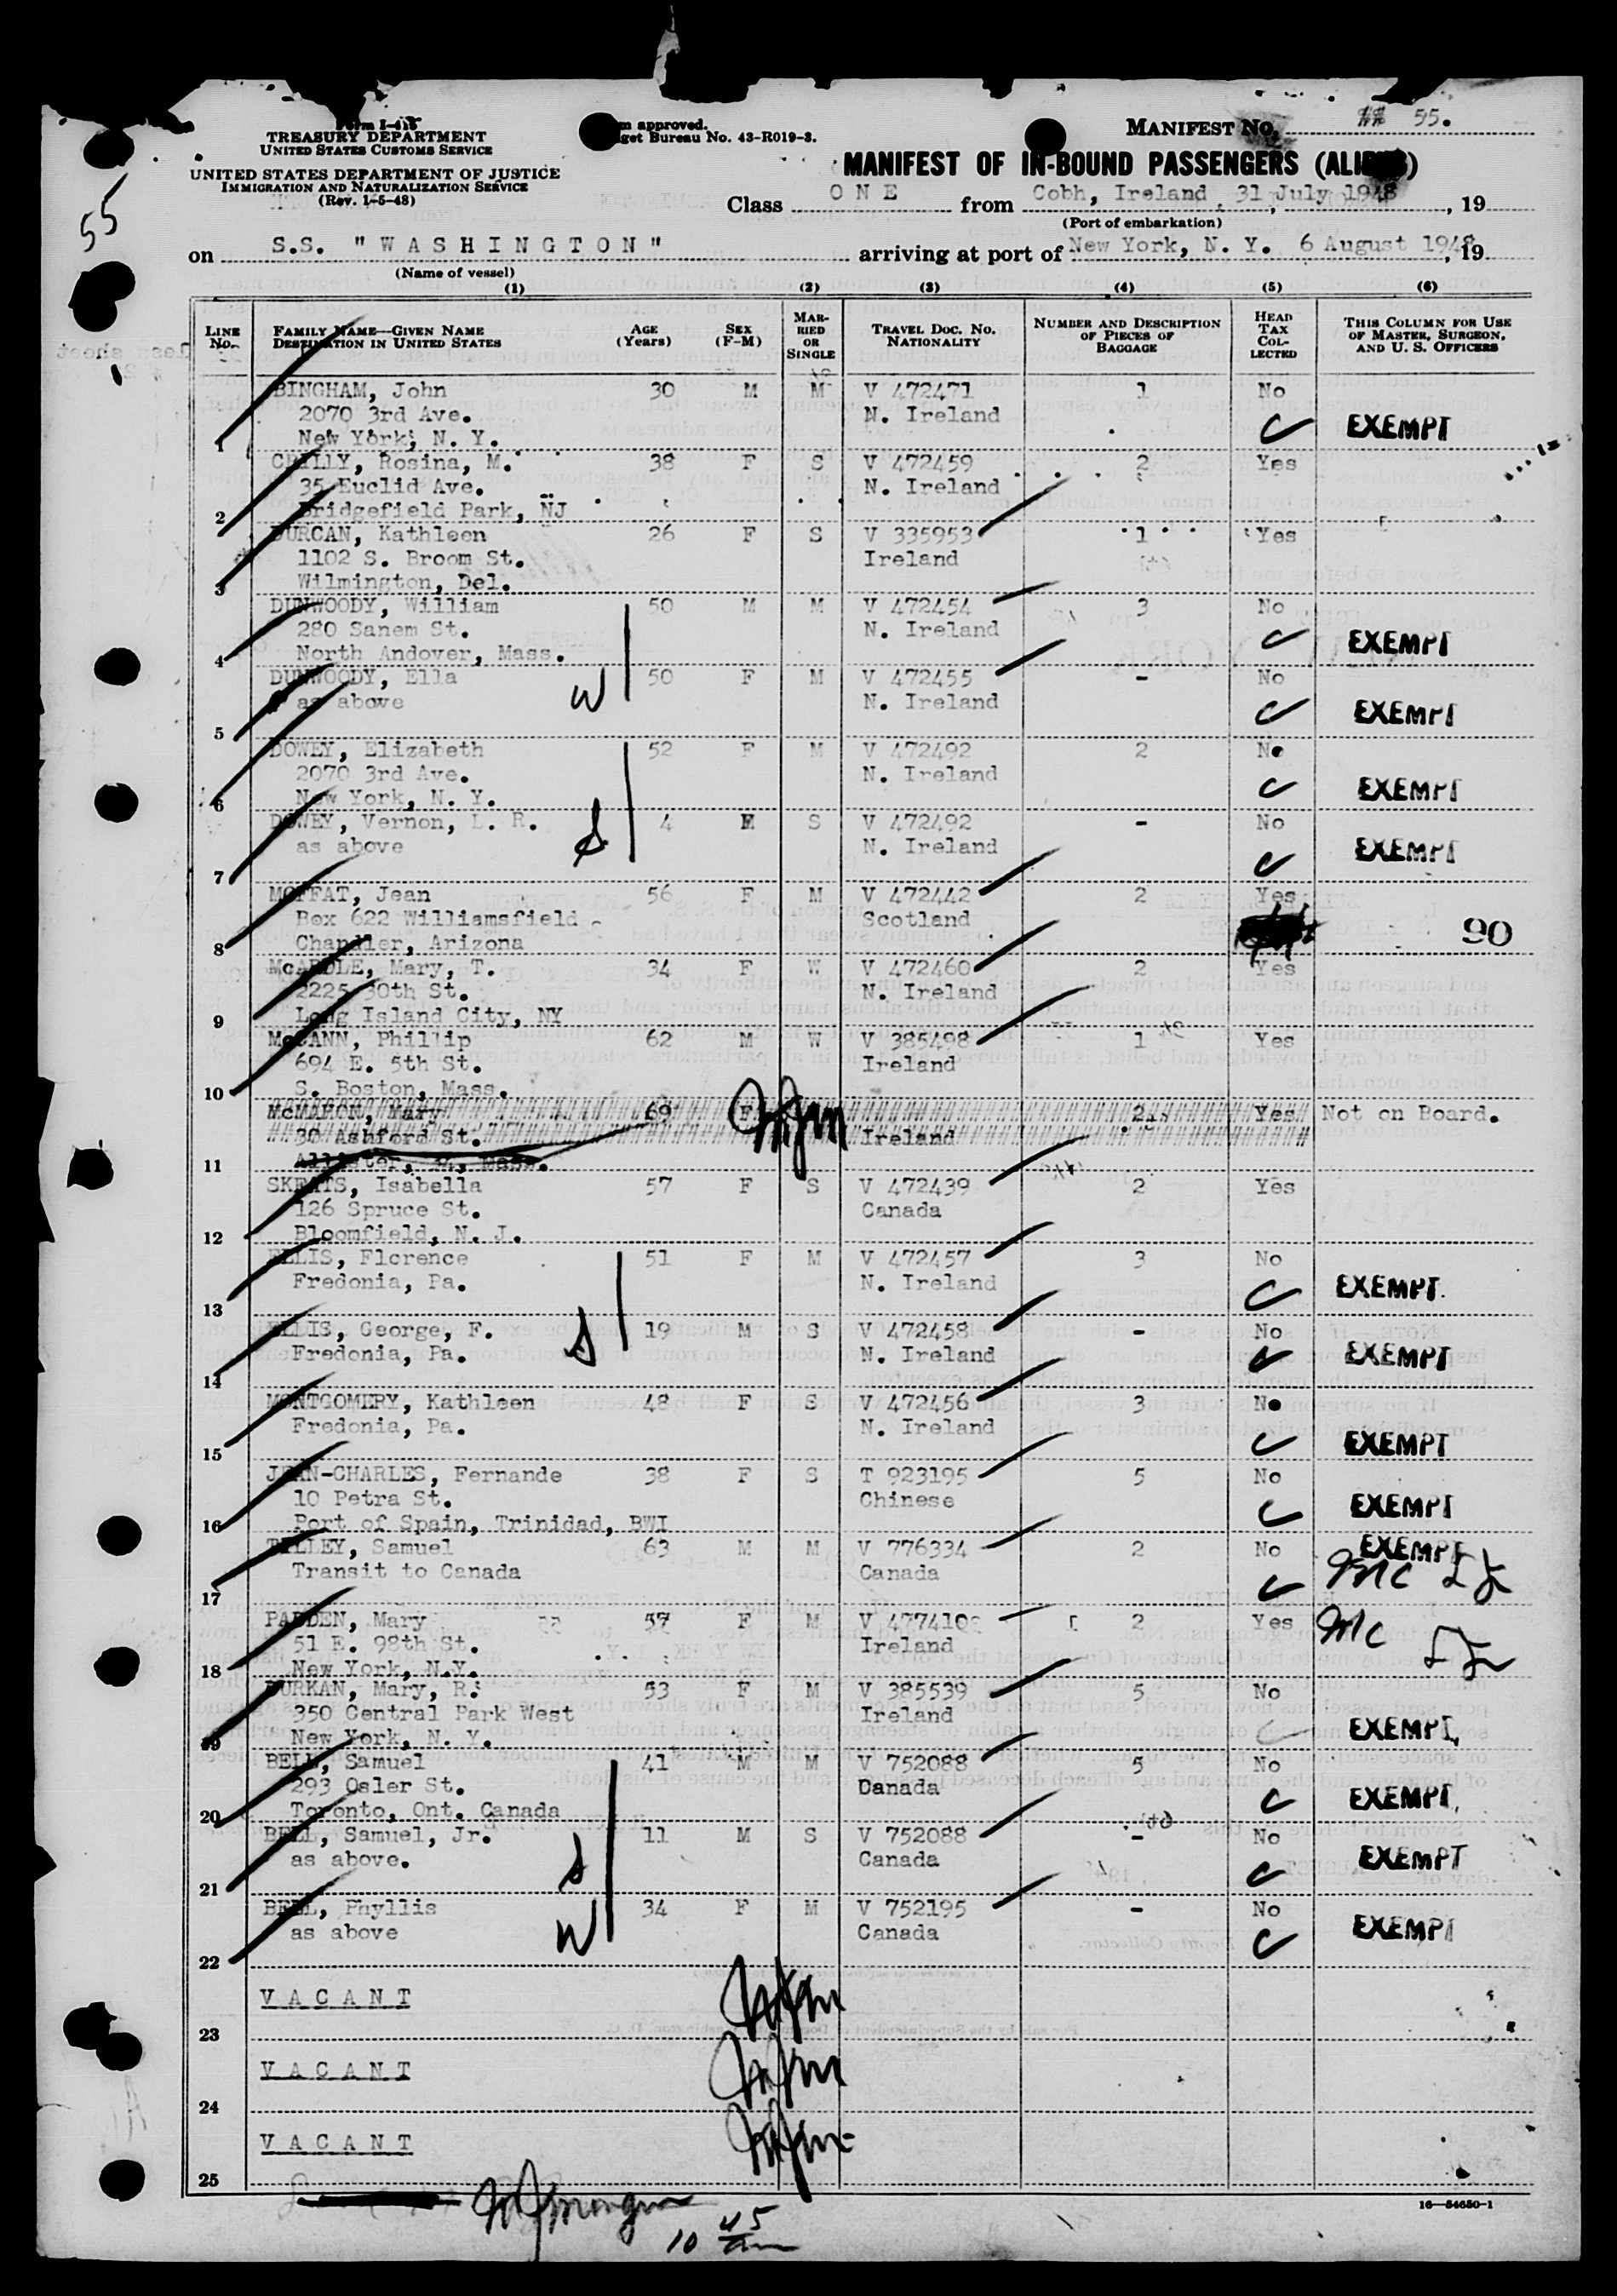 MANIFEST NO. 55.
Form I-418
TREASURY DEPARTMENT
UNITED STATES CUSTOMS SERVICE
UNITED STATES DEPARTMENT OF JUSTICE
IMMIGRATION AND NATURALIZATION SERVICE
(Rev. 1-5-48)
approved.
get Bureau No. 43-R019-3.
55
MANIFEST OF IN-BOUND PASSENGERS (ALIENS)
Class O N E from Cobh, Ireland, 31 July 1948, 19
(Port of embarkation)
on S.S. "WASHINGTON" arriving at port of New York, N. Y. 6 August 1948, 19
(Name of vessel)
(1) (2) (3) (4) (5) (6)
LINE No. FAMILY NAME—GIVEN NAME DESTINATION IN UNITED STATES AGE (Years) SEX (F-M) MARRIED OR SINGLE TRAVEL DOC. NO. NATIONALITY NUMBER AND DESCRIPTION OF PIECES OF BAGGAGE HEAD TAX COLLECTED THIS COLUMN FOR USE OF MASTER, SURGEON, AND U. S. OFFICERS
BINGHAM, John 30 M M V 472471 1 No
2070 3rd Ave. N. Ireland
1 New York, N. Y. EXEMPT
Rosina, M. 38 F S V 472459 2 Yes
35 Euclid Ave. N. Ireland
2 Bridgefield Park, NJ
DURCAN, Kathleen 26 F S V 335953 1 Yes
1102 S. Broom St. Ireland
3 Wilmington, Del.
DUNWOODY, William 50 M M V 472454 3 No
280 Sanem St. N. Ireland
4 North Andover, Mass. EXEMPT
DUNWOODY, Ella 50 F M V 472455 - No
as above W N. Ireland
5 EXEMPT
DOWEY, Elizabeth 52 F M V 472492 2 No
2070 3rd Ave. N. Ireland
6 New York, N. Y. EXEMPT
DOWEY, Vernon, L. R. 4 S V 472492 - No
as above S N. Ireland
7 EXEMPT
MOFFAT, Jean 56 F M V 472442 2 Yes
Box 622 Williamsfield Scotland
8 Chandler, Arizona 90
McARDLE, Mary, T. 34 F W V 472460 2 Yes
2225 30th St. N. Ireland
9 Long Island City, NY
McCANN, Phillip 62 M W V 385498 1 Yes
694 E. 5th St. Ireland
10 S. Boston, Mass.
McMAHON, Mary 69 F 2 Yes Not on Board.
30 Ashford St. Ireland
11 Mass.
SKEATS, Isabella 57 F S V 472439 2 Yes
126 Spruce St. Canada
12 Bloomfield, N. J.
ELLIS, Florence 51 F M V 472457 3 No
Fredonia, Pa. N. Ireland
13 EXEMPT.
ELLIS, George, F. 19 M S V 472458 - No
Fredonia, Pa. S N. Ireland
14 EXEMPT
MONTGOMERY, Kathleen 48 F S V 472456 3 No
Fredonia, Pa. N. Ireland
15 EXEMPT
JEAN-CHARLES, Fernande 38 F S T 923195 5 No
10 Petra St. Chinese
16 Port of Spain, Trinidad, BWI EXEMPT
TILLEY, Samuel 63 M M V 776334 2 No EXEMPT
Transit to Canada Canada mc
17
PADDEN, Mary 57 F M 2 Yes mc
51 E. 98th St. Ireland
18 New York, N.Y.
DURKAN, Mary, R. 53 F M V 385539 5 No
350 Central Park West Ireland
19 New York, N. Y. EXEMPT
BELL, Samuel 41 M M V 752088 5 No
293 Osler St. Canada
20 Toronto, Ont. Canada EXEMPT
BELL, Samuel, Jr. 11 M S V 752088 - No
as above. S Canada
21 EXEMPT
BELL, Phyllis 34 F M V 752195 - No
as above W Canada
22 EXEMPT
V A C A N T
23
V A C A N T
24
V A C A N T
25
10 45 am
16—54650-1